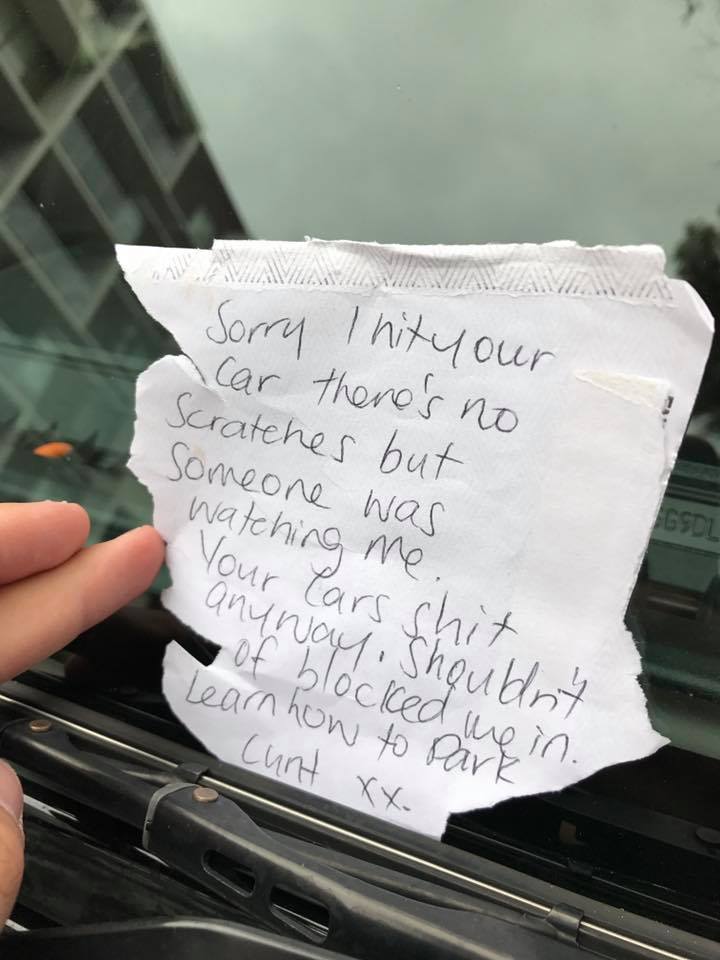 Sorry I hit your
car there's no
scratches but
someone was
watching me.
Your cars shit
anyway. Shouldn't
of blocked me in.
Learn how to park
cunt xx.